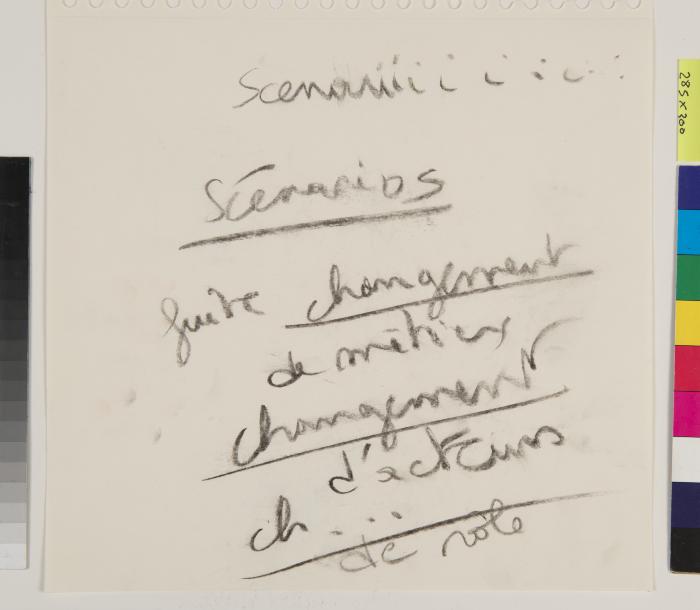 Scenariiii i i i i
Scénarios
fuite changement
de métiers
changement
d'acteurs
ch...
de rôle
285 x 300